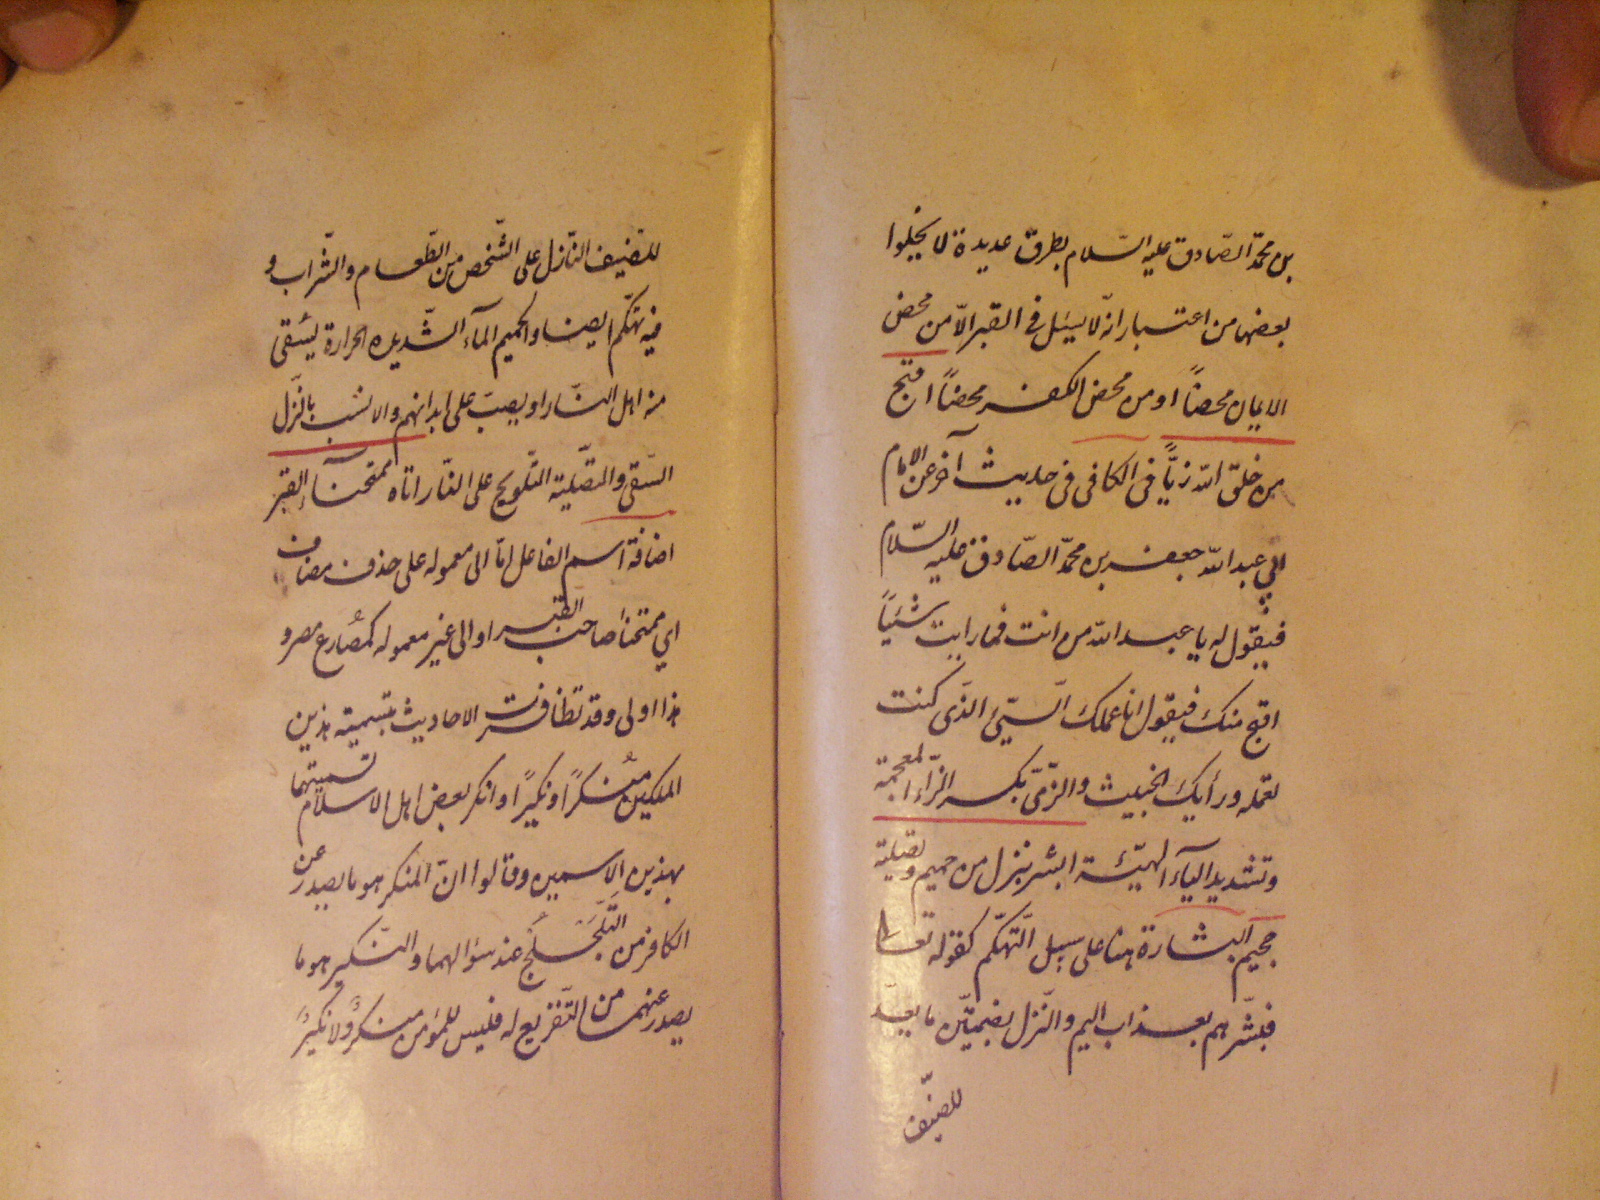 بن محمّد الصّادق عليه السّلام بطرق عديدة لا يخلوا
بعضها من اعتبار انّه لا يسئل فى القبر الّا من محض
الايمان محضاً او من محض الكفر محضاً اقبح
من خلق اللّه زيّاً فى الكافى فى حديث آخر عن الامام
ابي عبد اللّه جعفر بن محمّد الصّادق عليه السّلام
فيقول له يا عبد اللّه من انت فما رايت شيئاً
اقبح منك فيقول انا عملك السّيّئ الّذى كنت
تعمله ورأيك الخبيث والزّىّ بكسر الزّاء المعجمة
وتشديد الياء الهيئة ابشر بنزل من حميم وتصلية
جحيم البشارة هنا على سبيل التّهكّم كقوله تعالى
فبشّرهم بعذاب اليم والنّزل بضمّتين ما يعدّ
للضّيف
للضّيف النّازل على الشّخص من الطّعام والشّراب و
فيه تهكّم ايضا والحميم المآء الشّديده الحرارة يسقى
منه اهل النّار او يصبّ على ابدانهم والانسب بالنّزل
السّقى والتّصلية التّلويح على النّار اتاه ممتحناء القبر
اضافة اسم الفاعل امّا الى معموله على حذف مضاف
اي ممتحنا صاحب القبر او الى غير معموله كمصارع مصر و
هذا اولى وقد تظافرت الاحاديث بتسمية هذين
الملكين منكراً ونكيراً وانكر بعض اهل الاسلام تسميتهما
بهذين الاسمين وقالوا انّ المنكر هو ما يصدر عن
الكافر من التّلجلج عند سؤالهما والنّكير هو ما
يصدر عنهما من التّقريع له فليس للمؤمن منكرٌ ولا نكيرٌ